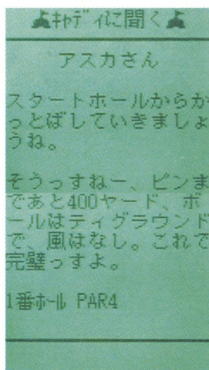 ｷｬﾃﾞｨに聞く
アスカさん
スタートホールからか
っとばしていきましょ
うね。
そうっすねー、ピンま
であと400ヤード、ボ
ールはティグラウンド
で、風はなし。これで
完璧っすよ。
1番ﾎｰﾙ PAR4